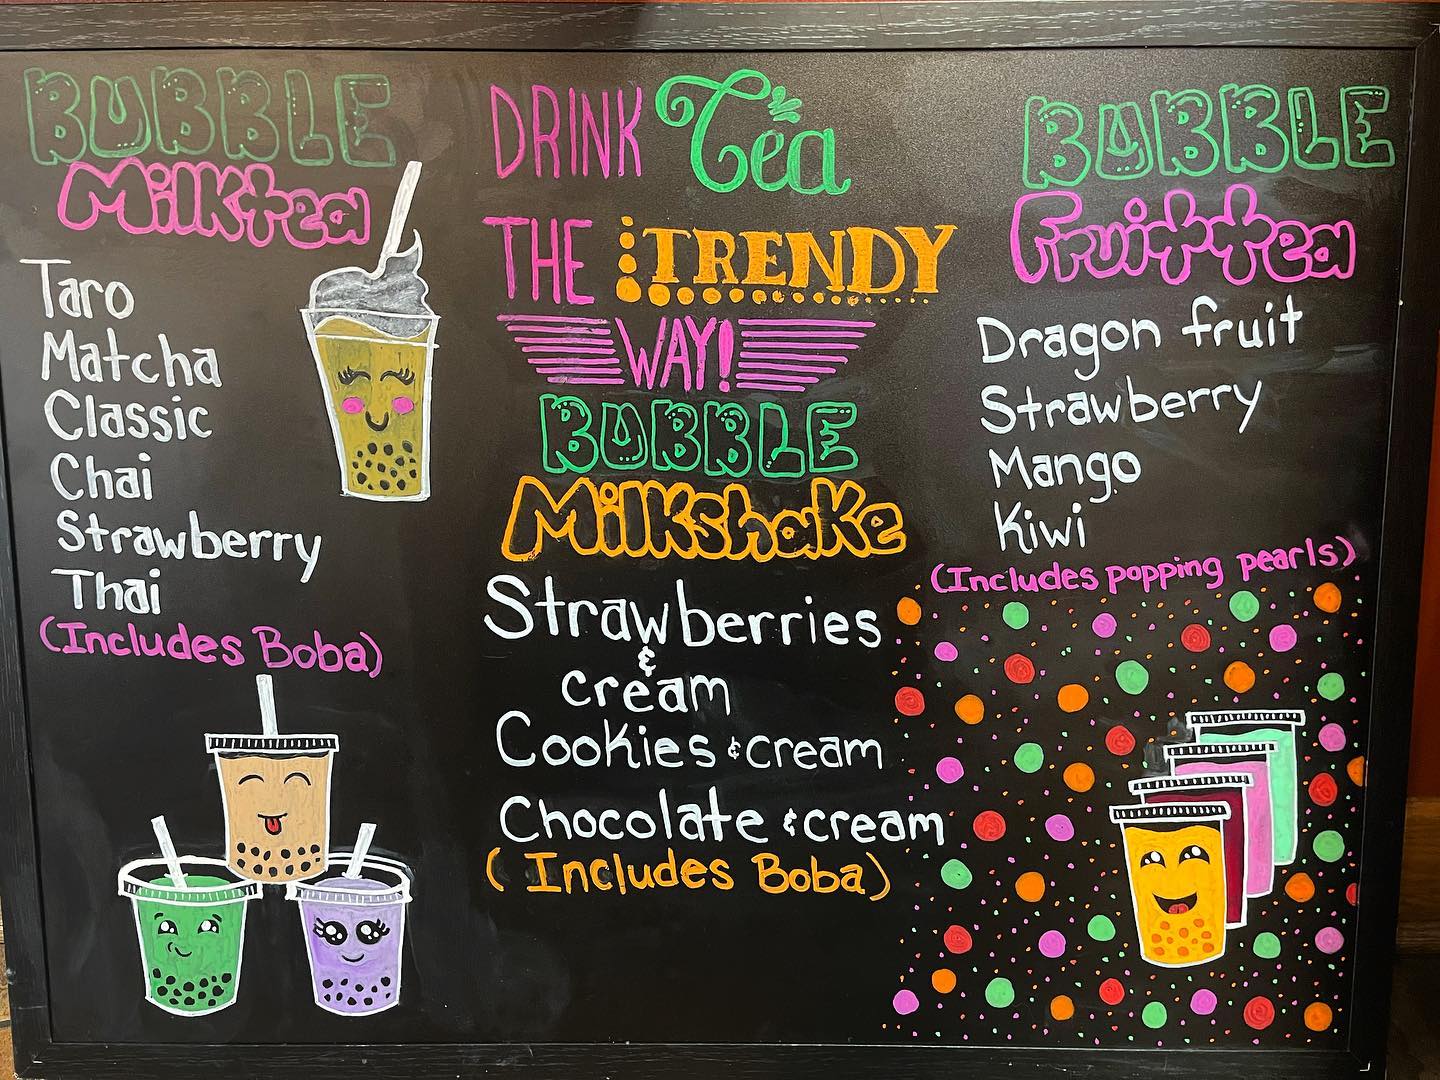 BUBBLE
Milktea
Taro
Matcha
Classic
Chai
Strawberry
Thai
(Includes Boba)
DRINK Tea
THE TRENDY
WAY!
BUBBLE
Milkshake
Strawberries
&
cream
Cookies & cream
Chocolate & cream
(Includes Boba)
BUBBLE
Fruittea
Dragon fruit
Strawberry
Mango
Kiwi
(Includes popping pearls)